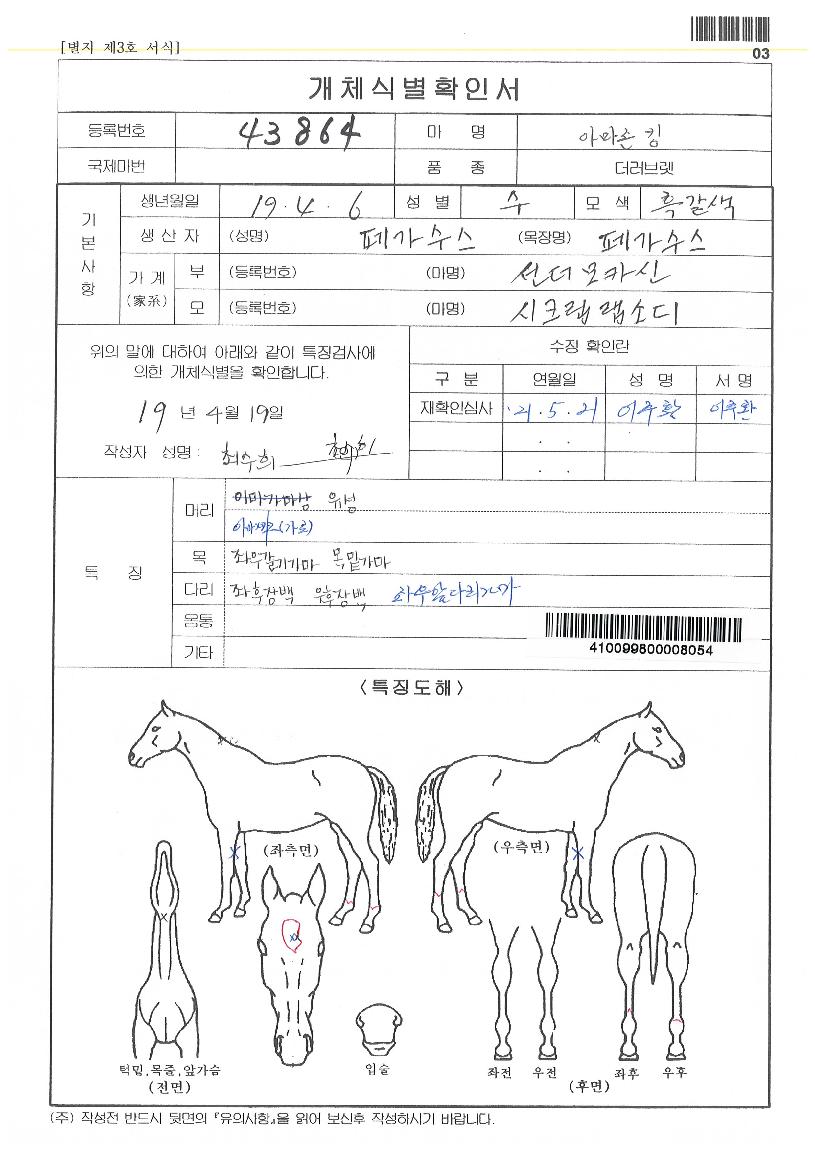 [별지 제3호 서식]
03
개체식별확인서
등록번호 43864 마 명 아마존 킹
국제마번 품 종 더러브렛
기본사항
생년월일 19.4.6 성 별 수 모 색 흑갈색
생 산 자 (성명) 페가수스 (목장명) 페가수스
가 계 (家系) 부 (등록번호) (마명) 선더모카신
모 (등록번호) (마명) 시크랩랩소디
위의 말에 대하여 아래와 같이 특징검사에
의한 개체식별을 확인합니다.
19 년 4월 19일
작성자 성명 : 최수희
수징 확인란
구 분 연월일 성 명 서 명
재확인심사 21.5.21
. .
. .
특 징
머리 이마가마상 유성
(가로)
목 좌우갈기가마 목밑가마
다리 좌후장백 우후장백 좌우앞다리가마
몸통
기타
410099800008054
<특징도해>
(좌측면) (우측면)
턱밑,목줄,앞가슴
(전면)
입술
좌전 우전
(후면)
좌후 우후
(주) 작성전 반드시 뒷면의 『유의사항』을 읽어 보신후 작성하시기 바랍니다.